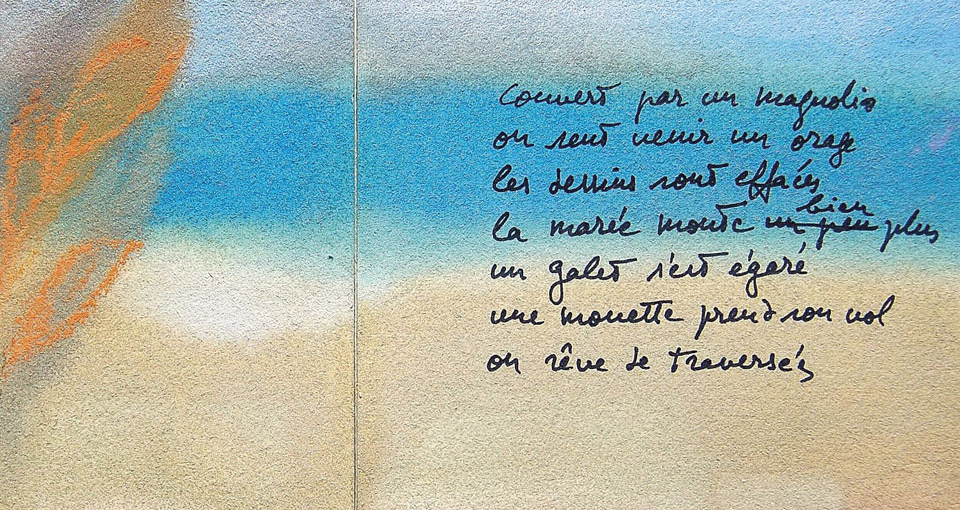 Couvert par un magnolia
on sent venir un orage
les dessins sont effacés
la marée monte un peu bien plus
un galet s'est égaré
une mouette prend son vol
on rêve de traversés